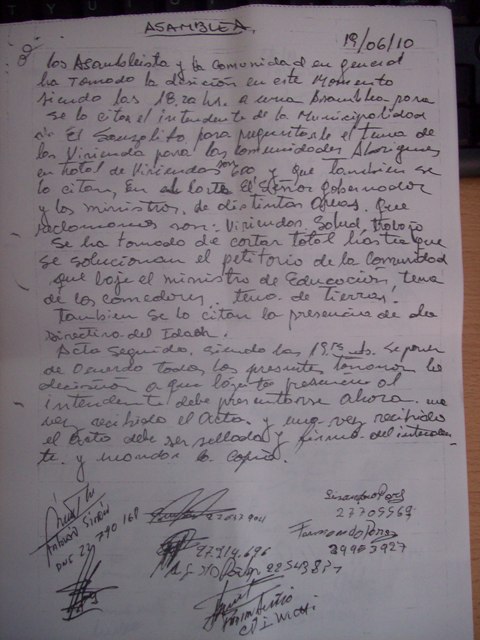 ASAMBLEA.
19/06/10
los Asambleista y la Comunidad en general
ha Tomado la desición en este Momento
siendo las 18:20 hs. a una Asamblea para
se lo citar el intendente de la Municipalidad
El Sauzalito para preguntarle el tema de
las Vivienda para las Comunidades Aborigenes
en total de Viviendas son 600 y que tambien se
lo citan, En el corte El Señor gobernador
y los ministros, de distintas Areas. Que
reclamamos son: Viviendas, Salud, Trabajo
Se ha tomado de cortar total hasta que
se solucionan el petitorio de la Comunidad
que baje el ministro de Educación, tema
de los comedores. tema de tierras.
Tambien se lo citan la presencia de la
Directiva del Idach.
Acta Seguido, siendo las 19:15 hs. Se ponen
de Acuerdo todos los presentes tomaron la
decision a que la presencia al
intendente debe presentarse ahora. una
vez recibido el Acta. y una vez recibido
el Acta debe ser sellada y firma del intenden-
te. y mandar la copia.
DNI 23 790 168
27709569
Fernando Perez
29903927